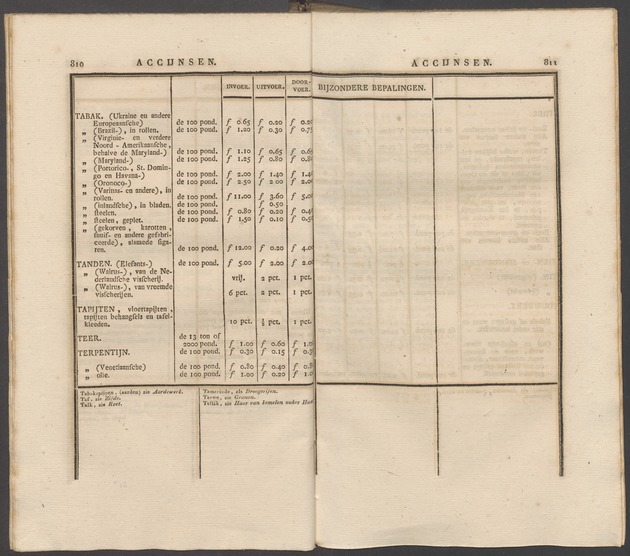 810 ACCIJNSEN.
ACCIJNSEN. 811
INVOER. UITVOER. DOOR-VOER. BIJZONDERE BEPALINGEN.
TABAK. (Ukraine en andere
Europeaansche) de 100 pond. f 0.65 f 0.20 f 0.20
„ (Brazil-), in rollen. de 100 pond. f 1.20 f 0.30 f 0.75
„ (Virginie- en verdere
Noord-Amerikaansche,
behalve de Maryland-) de 100 pond. f 1.10 f 0.65 f 0.65
„ (Maryland-) de 100 pond. f 1.25 f 0.80 f 0.80
„ (Portorico-, St. Domin-
go en Havana-) de 100 pond. f 2.00 f 1.40 f 1.40
„ (Oronoco-) de 100 pond. f 2.50 f 2.00 f 2.00
„ (Varinas- en andere), in
rollen. de 100 pond. f 11.00 f 3.60 f 5.00
„ (inlandsche), in bladen. de 100 pond. f 0.50
„ steelen. de 100 pond. f 0.80 f 0.20 f
„ steelen, geplet. de 100 pond. f 1.50 f 0.10 f
„ (gekorven, karotten,
snuif- en andere gefabri-
ceerde), alsmede siga-
ren. de 100 pond. f 12.00 f 0.20 f 4.00
TANDEN. (Elefants-) de 100 pond. f 5.00 f 2.00 f 2.00
„ (Walrus-), van de Ne-
derlandsche visscherij. vrij. 2 pct. 1 pct.
„ (Walrus-), van vreemde
visscherijen. 6 pct. 2 pct. 1 pct.
TAPIJTEN, vloertapijten,
tapijten behangsels en tafel-
kleeden. 10 pct. ½ pct. 1 pct.
TEER. de 13 ton of
2000 pond. f 1.00 f 0.60 f
TERPENTIJN. de 100 pond. f 0.30 f 0.15 f
„ (Venetiaansche) de 100 pond. f 0.80 f 0.40 f
„ olie. de 100 pond. f 1.00 f 0.20 f
Tabakspijpen, (aarden) zie Aardewerk.
Taf, zie Zijde.
Talk, zie Roet.
Tamerinde, als Droogerijen.
Tarwe, zie Granen.
Tellik, zie Haar van kemelen onder Haar